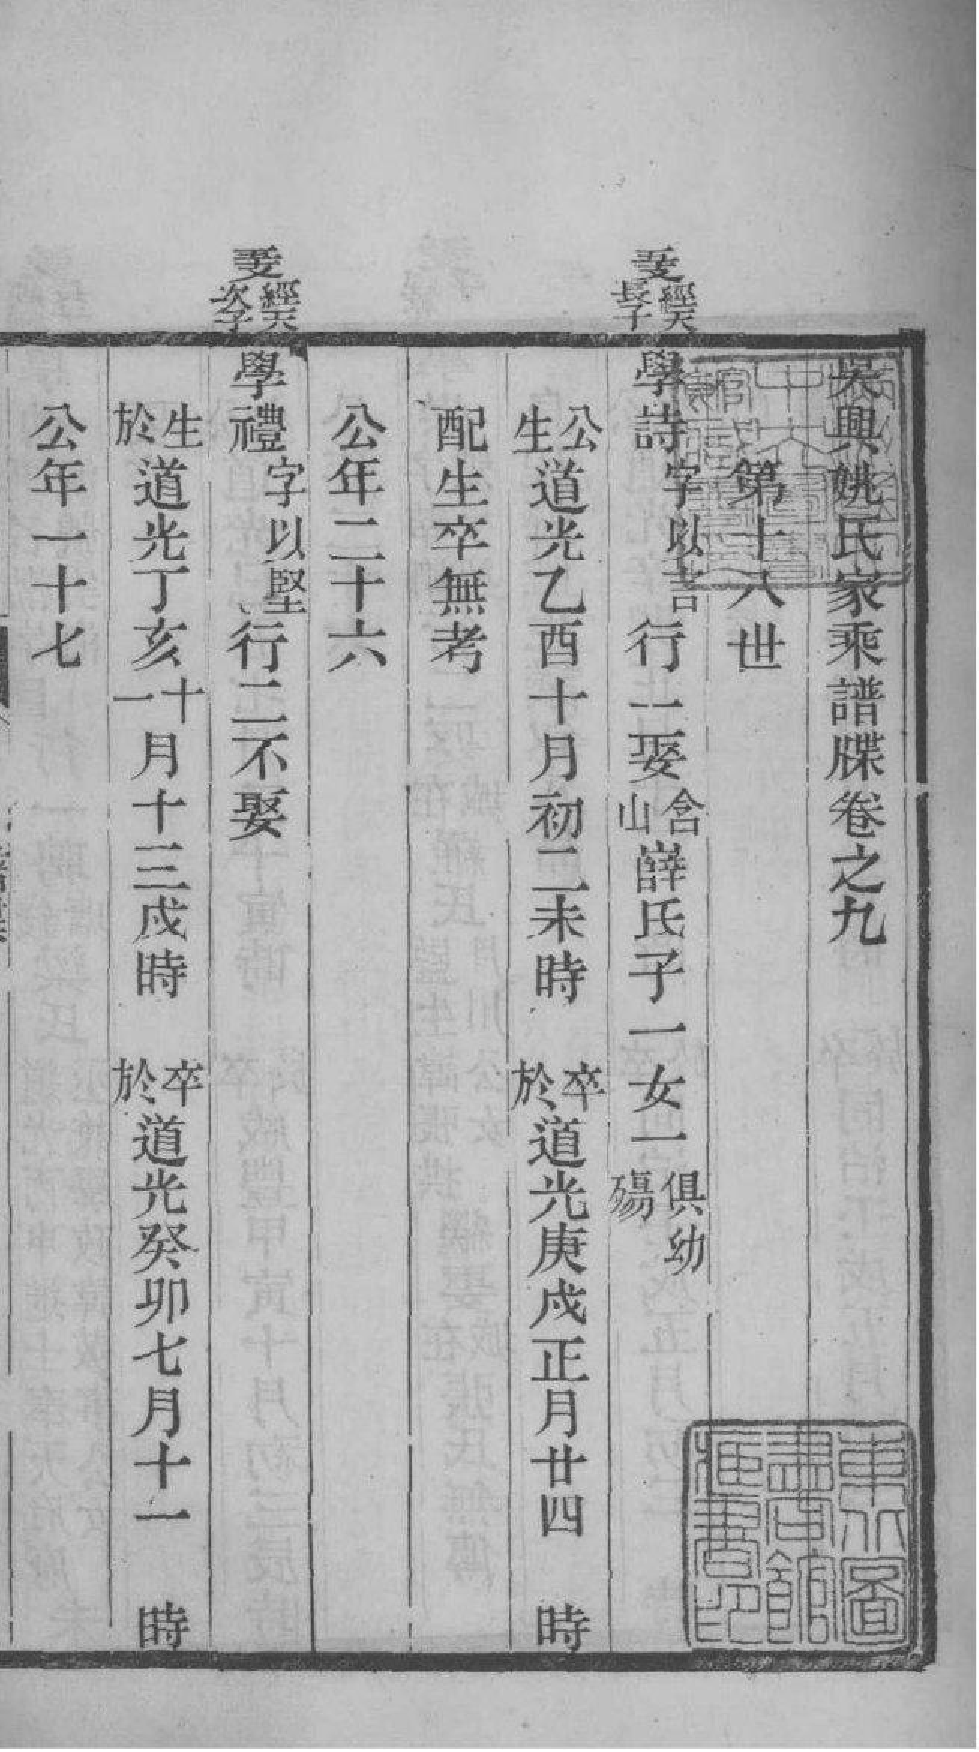 吳興姚氏家乘譜牒卷之九
第十八世
經天長子
學詩字以言行一娶含山薛氏子一女一俱幼殤
公生道光乙酉十月初二未時 卒於道光庚戌正月廿四 時
配生卒無考
公年二十六
經天次子
學禮字以堅行二不娶
生於道光丁亥十一月十三戌時 卒於道光癸卯七月十一 時
公年一十七
東北圖書館所藏書印